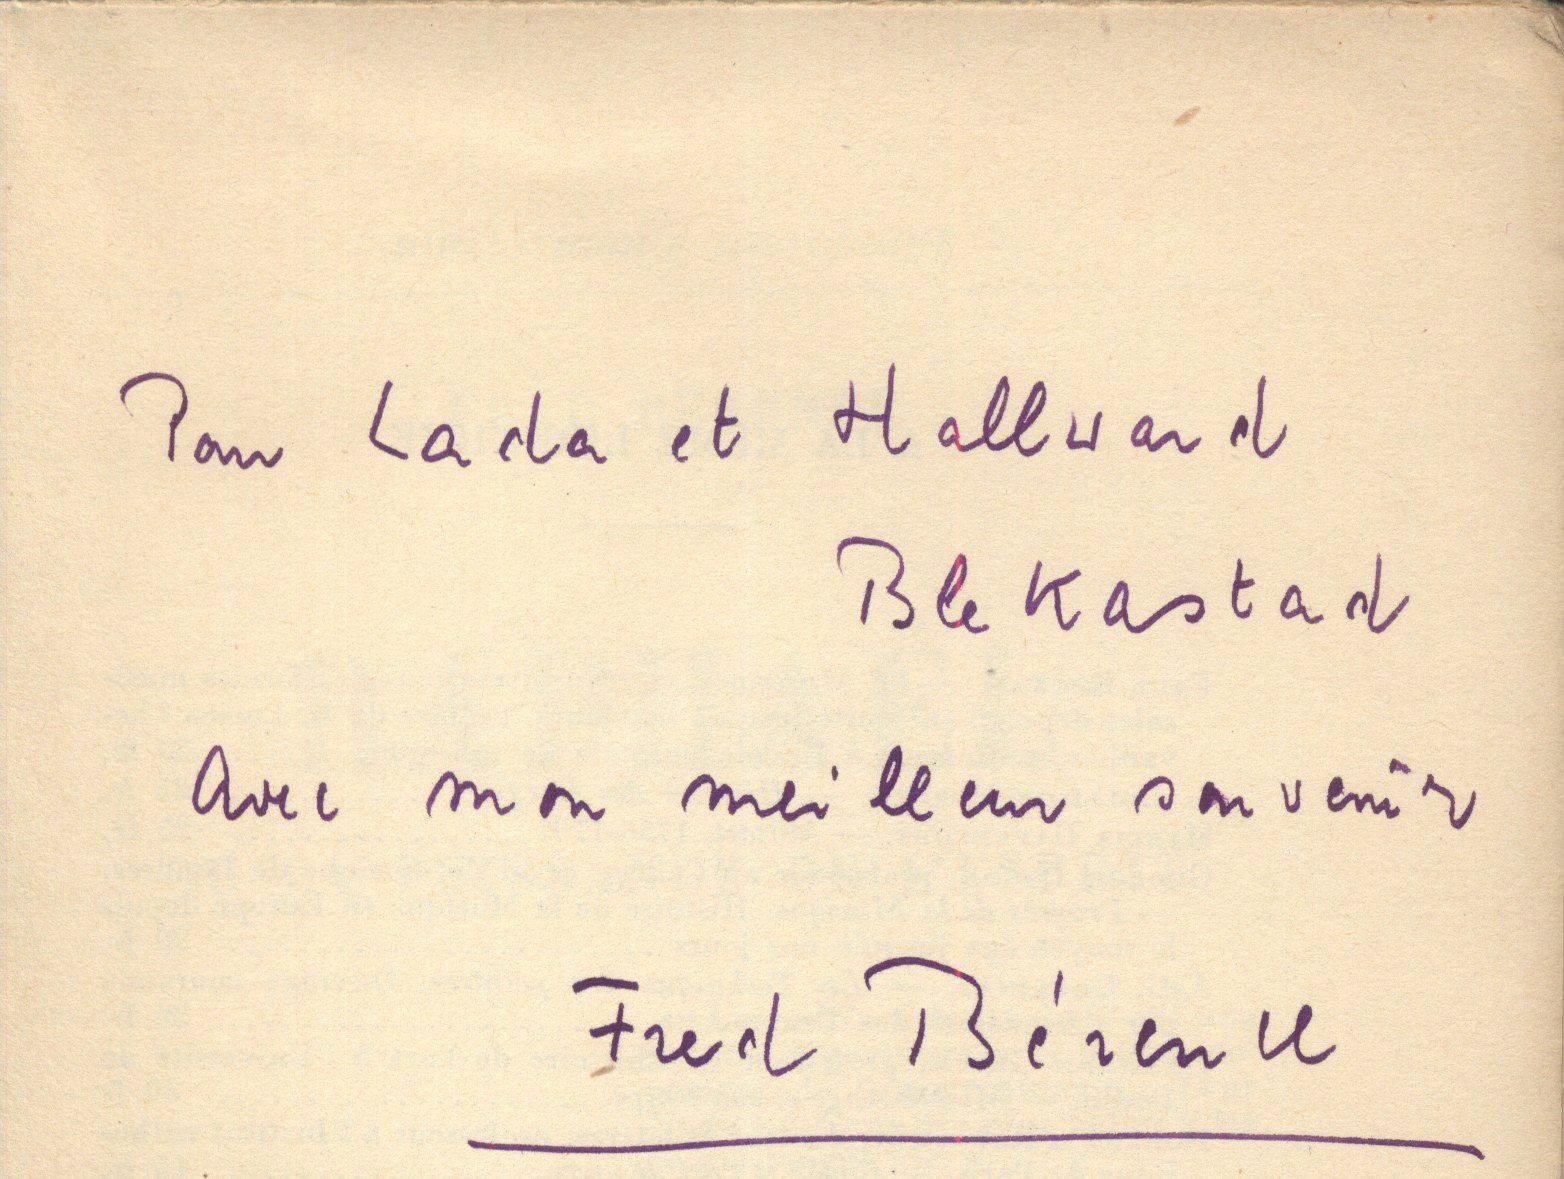 Pour Lada et Hallvard
Blekastad
Avec mon meilleur souvenir
Fred Bérence